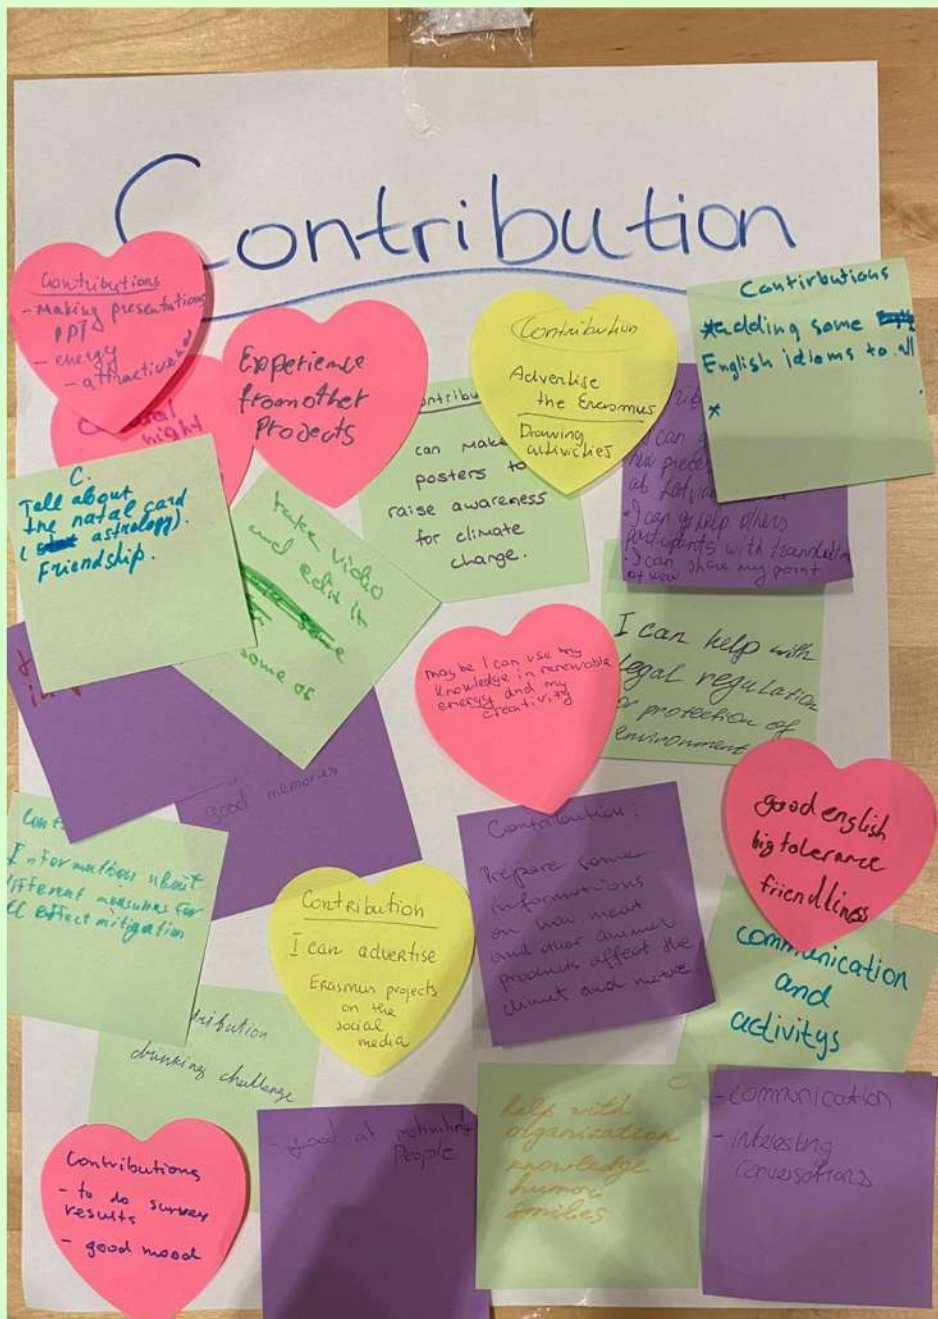 Contribution
Contributions
- Making presentations
PPT
- energy
- attractive
night
Experience
from other
Projects
can make
posters to
raise awareness
for climate
change.
Contribution
Advertise
the Eresmus
Drawing
activities
Contirbutions
*adding some
English idioms to all
*
I can
at
I can help others
participants with
I can share my point
of
C.
Tell about
the natal card
( astrology).
Friendship.
take video
and edit it
some of
maybe I can use my
knowledge in renewable
energy and my
creativity
I can help with
legal regulation
protection of
environment
good memories
Information about
different measures for
CC effect mitigation
Contribution
I can advertise
Erasmus projects
on the
social
media
Contribution:
Prepare some
informations
on how meat
and other animal
products affect the
climat and nature
good english
big tolerance
friendliness
communication
and
activitys
drinking challenge
Contributions
- to do survey
results
- good mood
- good at motivating
People
C
help with
organization
knowledge
humor
smiles
- communication
- interesting
conversations